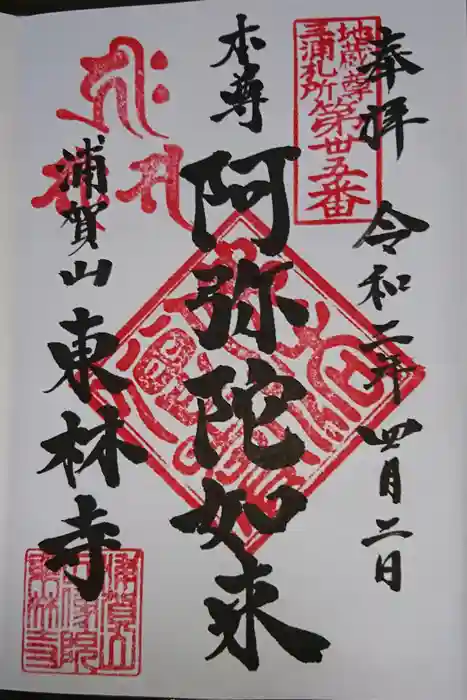 奉拝
令和二年四月二日
地蔵尊
三浦札所
第廿五番
本尊
阿弥陀如来
浦賀山
東林寺